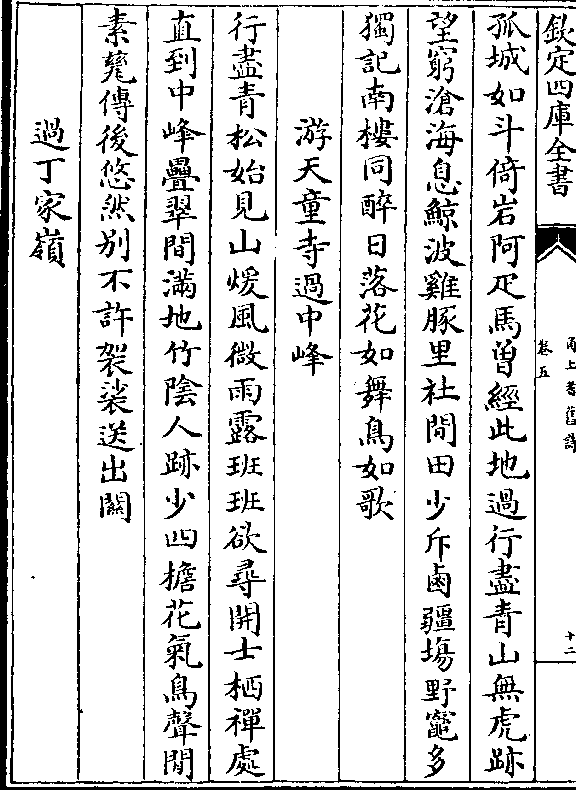 欽定四庫全書
甬上耆舊詩
卷五
十二
孤城如斗倚岩阿疋馬曽經此地過行盡青山無虎跡
望窮滄海息鯨波雞豚里社閒田少斥鹵疆塲野竈多
獨記南樓同醉日落花如舞鳥如歌
游天童寺過中峰
行盡青松始見山煖風微雨露班班欲尋開士栖禪處
直到中峰疊翠間滿地竹陰人跡少四檐花氣鳥聲閒
素甆傳後悠然别不許袈裟送出關
過丁家嶺